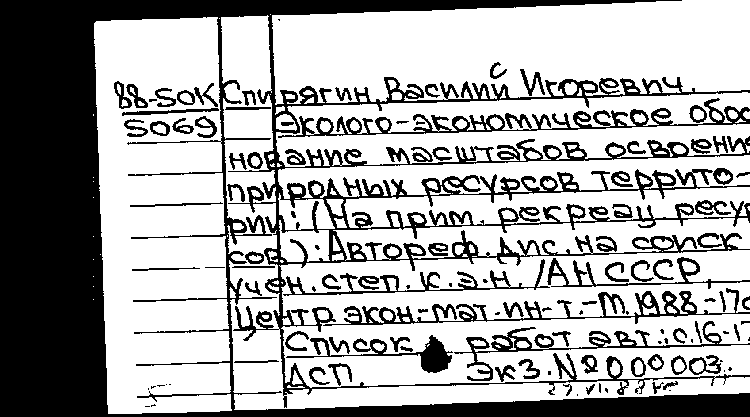 с
88-5ОК Спирягин, Василий Игоревич.
5069 Эколого-экономическое обос
нование масштабов освоени
природных ресурсов террито-
рии: (На прим. рекреац ресу
сов): Автореф. дис. на соиск
учен. степ. к.э.н. /АН СССР,
Центр. экон.-мат. ин-т.-М., 1988.-17с
Список работ авт.: с.16-17
ДСП. Экз. №000003.